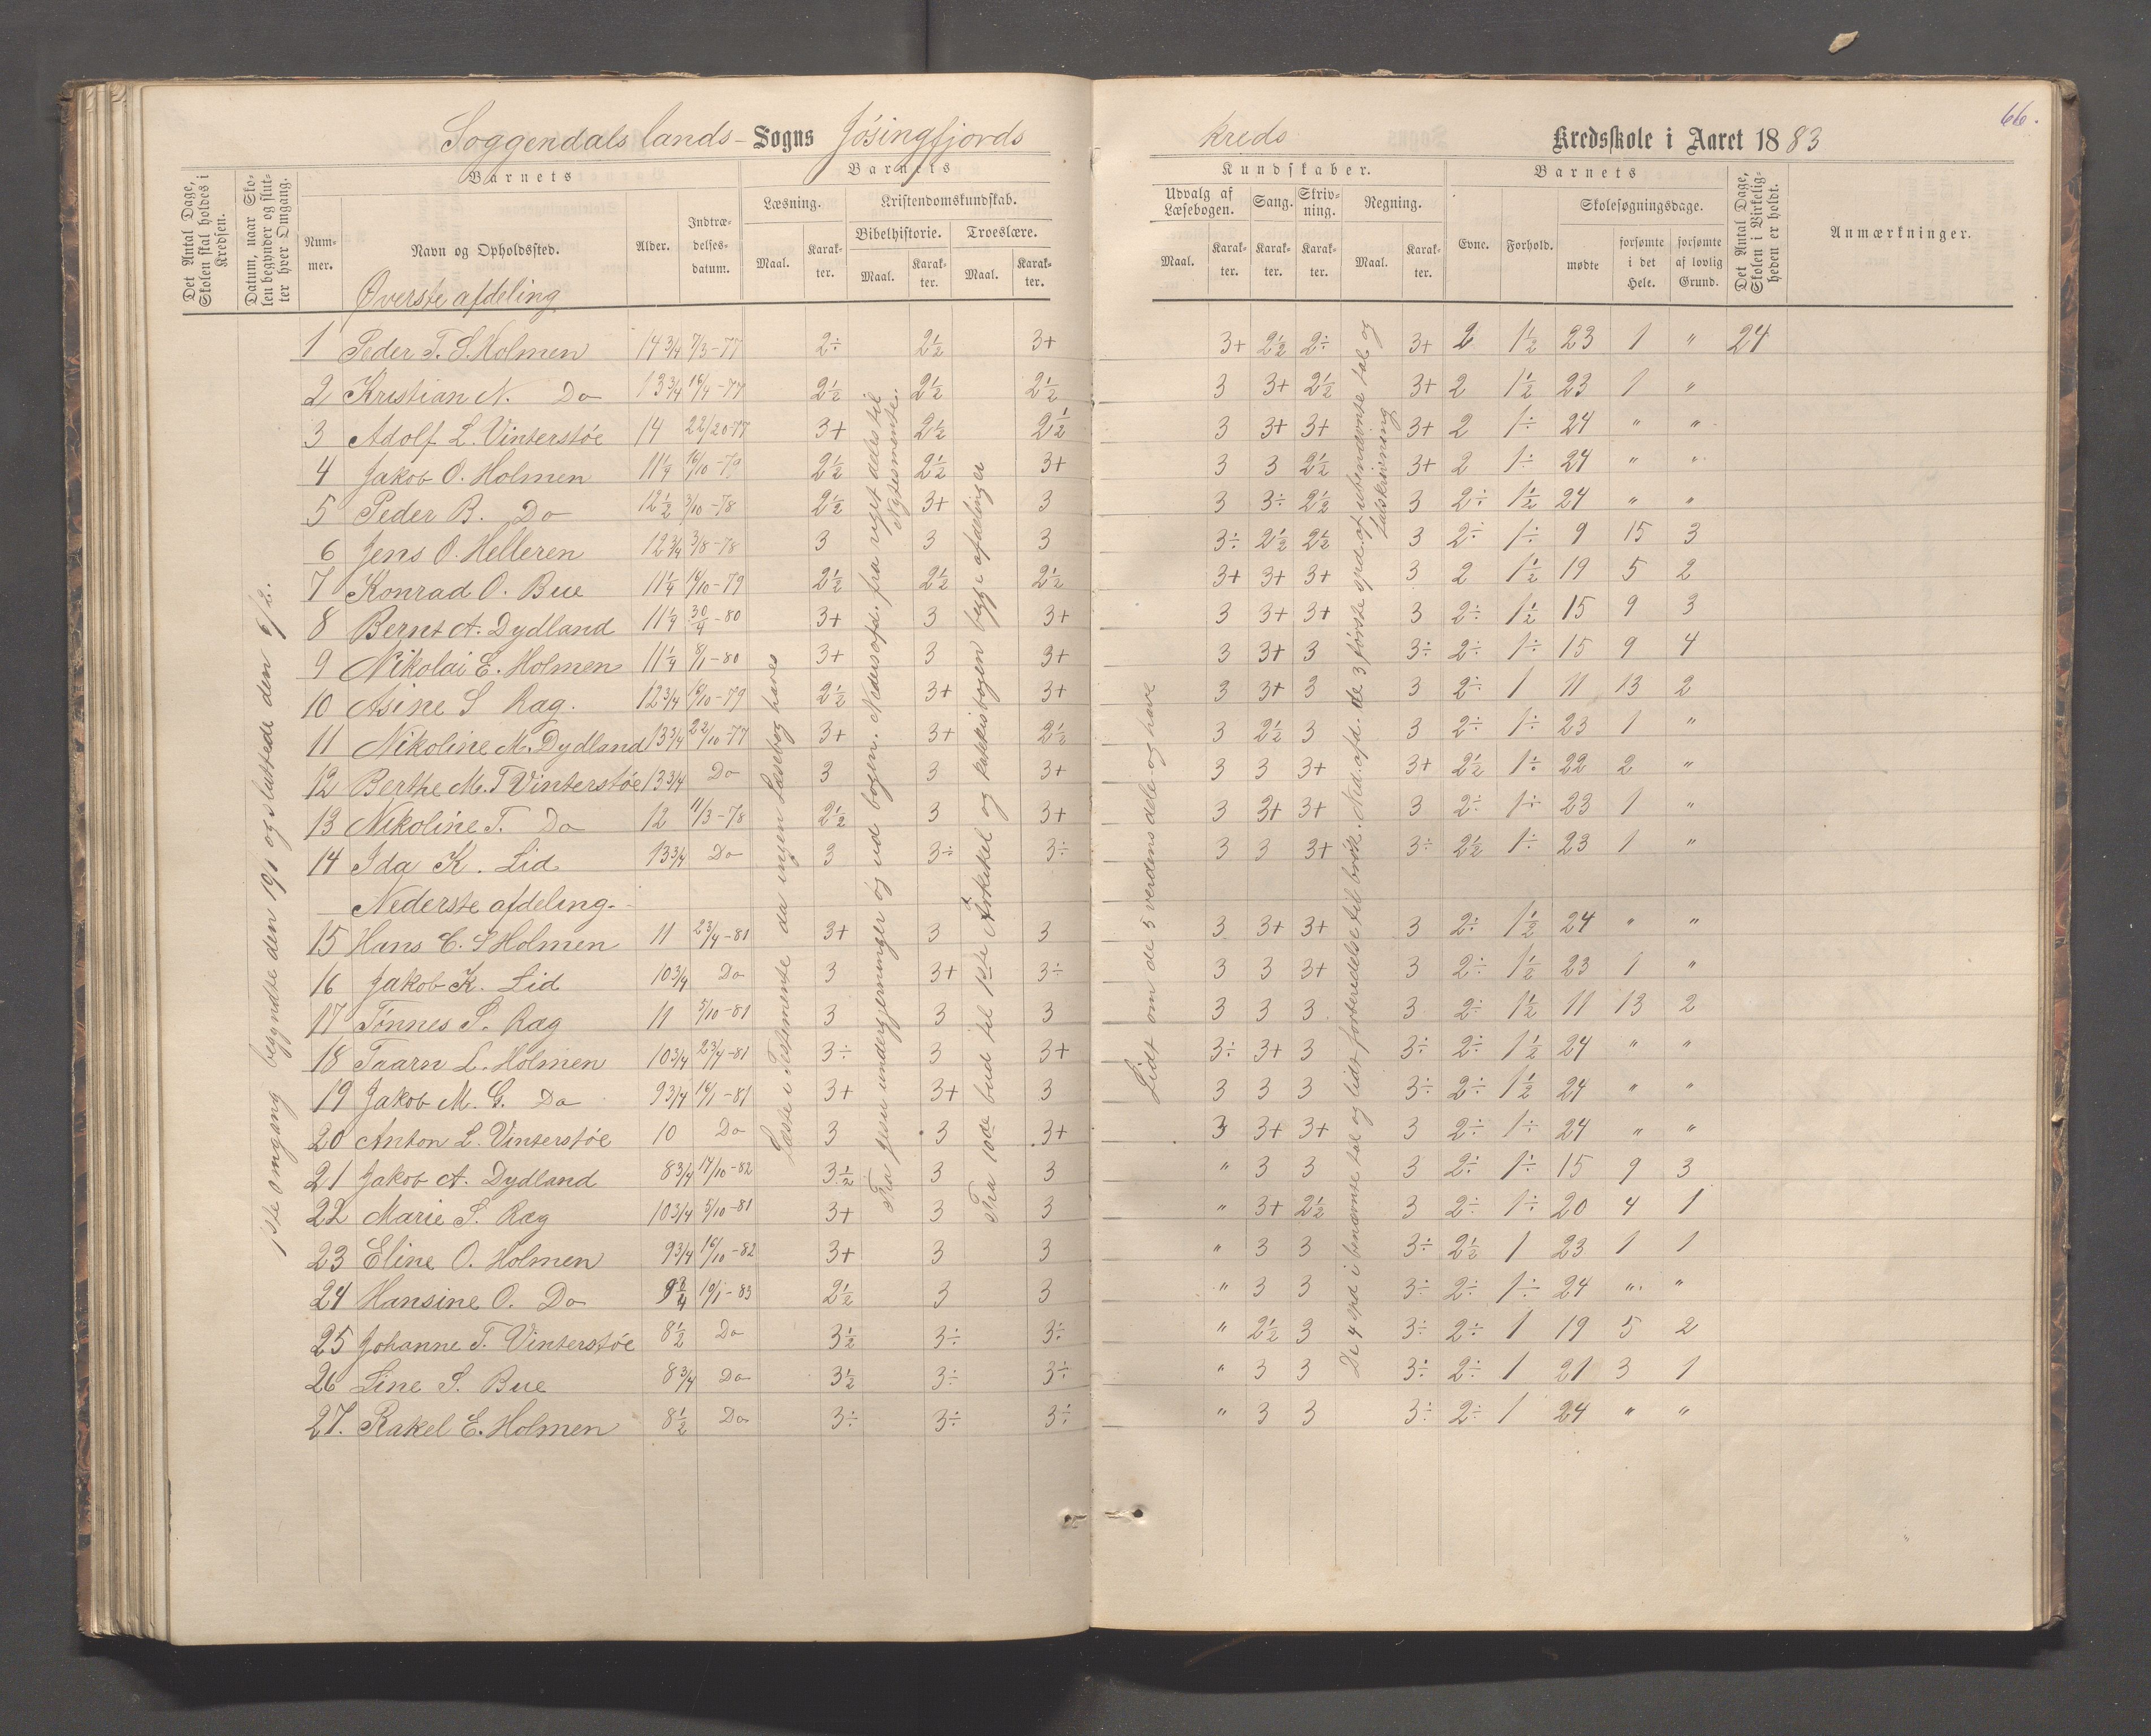 66.
Soggendals lands- Sogns Jösingfjords kreds Kredsskole i Aaret 1883
Det Antal Dage, Skolen skal holdes i Kredsen.
Datum, naar Skolen begynder og slutter hver Omgang.
Barnets
Nummer.
Navn og Opholdssted.
Alder.
Indtrædelsesdatum.
Barnets
Læsning.
Maal.
Karakter.
Kristendomskundskab.
Bibelhistorie.
Maal.
Karakter.
Troeslære.
Maal.
Karakter.
Kundskaber.
Udvalg af Læsebogen.
Maal.
Karakter.
Sang.
Karakter.
Skrivning.
Karakter.
Regning.
Maal.
Karakter.
Barnets
Evne.
Forhold.
Skolesøgningsdage.
mødte
forsømte i det Hele.
forsømte af lovlig Grund.
Det Antal Dage, Skolen i Virkeligheden er holdt.
Anmærkninger.
Øverste afdeling
1 Peder T. S. Holmen 14 3/4 7/3-77 2÷ 2½ 3+ 3+ 2½ 2÷ 3+ 2 1½ 23 1 " 24
2 Kristian N. Do 13 3/4 16/4-77 2½ 2½ 2½ 3 3+ 2½ 3+ 2 1½ 23 1 "
3 Adolf L. Vinterstøe 14 22/10-77 3+ 2½ 2½ 3 3+ 3+ 3+ 2 1÷ 24 " "
4 Jakob O. Holmen 11¼ 16/10-79 2½ 2½ 3+ 3 3 2½ 3+ 2 1÷ 24 " "
5 Peder B. Do 12½ 3/10-78 2½ 3+ 3 3 3÷ 2½ 3 2÷ 1½ 24 " "
6 Jens O. Helleren 12 3/4 3/8-78 3 3 3 3÷ 2½ 2½ 3 2÷ 1÷ 9 15 3
7 Konrad O. Bue 11¼ 16/10-79 2½ 2½ 2½ 3+ 3+ 3+ 3 2 1½ 19 5 2
8 Bernt A. Dydland 11¼ 30/4-80 3+ 3 3+ 3 3+ 3+ 3 2÷ 1½ 15 9 3
9 Nikolai E. Holmen 11¼ 8/1-80 3+ 3 3+ 3 3+ 3 3÷ 2÷ 1÷ 15 9 4
10 Asine S Ræg. 12 3/4 16/10-79 2½ 3+ 3+ 3 3+ 3 3 2÷ 1 11 13 2
11 Nikoline M. Dydland 13 3/4 22/10-77 3+ 3+ 2½ 3 2½ 3 3 2÷ 1÷ 23 1 "
12 Berthe M. T Vinterstøe 13 3/4 Do 3 3 3+ 3 3 3+ 3+ 2½ 1÷ 22 2 "
13 Nikoline T. Do 12 11/3-78 2½ 3 3+ 3 3+ 3+ 3 2÷ 1÷ 23 1 "
14 Ida K. Lid 13 3/4 Do 3 3÷ 3÷ 3 3 3+ 3÷ 2½ 1÷ 23 1 "
Nederste afdeling.
15 Hans C. S Holmen 11 23/4-81 3+ 3 3 3 3+ 3+ 3 2÷ 1½ 24 " "
16 Jakob K. Lid 10 3/4 Do 3 3+ 3÷ 3 3 3+ 3 2÷ 1½ 23 1 "
17 Tönnes S. Ræg 11 3/10-81 3 3 3 3 3 3 3 2÷ 1½ 11 13 2
18 Taarn L. Holmen 10 3/4 23/4-81 3÷ 3 3+ 3÷ 3+ 3 3÷ 2÷ 1½ 24 " "
19 Jakob M. G. Do 9 3/4 16/1-81 3+ 3+ 3 3 3 3 3÷ 2÷ 1½ 24 " "
20 Anton L. Vinterstøe 10 Do 3 3 3+ 3 3+ 3+ 3 2÷ 1÷ 24 " "
21 Jakob A. Dydland 8 3/4 17/10-82 3½ 3 3 " 3 3 3 2÷ 1÷ 15 9 3
22 Marie S. Ræg 10 3/4 5/10-81 3+ 3 3 " 3+ 2½ 3 2÷ 1÷ 20 4 1
23 Eline O. Holmen 9 3/4 16/10-82 3+ 3 3 " 3 3 3÷ 2½ 1 23 1 1
24 Hansine O. Do 9 3/4 19/1-83 2½ 3 3 " 3 3 3÷ 2÷ 1÷ 24 " "
25 Johanne T. Vinterstøe 8½ Do 3½ 3÷ 3÷ " 2½ 3 3÷ 2÷ 1 19 5 2
26 Line S. Bue 8 3/4 Do 3½ 3÷ 3÷ " 3 3 3÷ 2÷ 1 21 3 1
27. Rakel E. Holmen 8½ Do 3÷ 3÷ 3÷ " 3 3 3÷ 2÷ 1 24 " "
1ste omgang begyndte den 19/1 og sluttede den 6/2.
Læste i Testamente da ingen Læsebog haves
Fra Jesu undergjerninger og ud bogen. Nederste afd. fra riget deles til Nytestamente.
Fra 10de bud til 1ste Artikel og Katekisbogen begge afdelinger
Lidt om de 5 verdens dele og have
De 4 spd i benævnte tal og lidt forberedelse til brök. Ned. afd. de 3 første spd. af ubenævnte tal og talskrivning